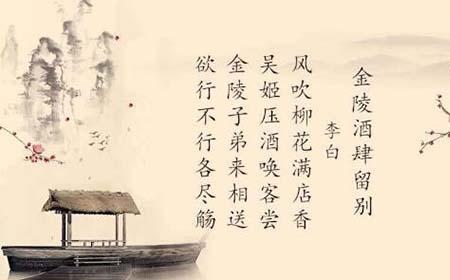 金陵酒肆留别
李白
风吹柳花满店香
吴姬压酒唤客尝
金陵子弟来相送
欲行不行各尽觞